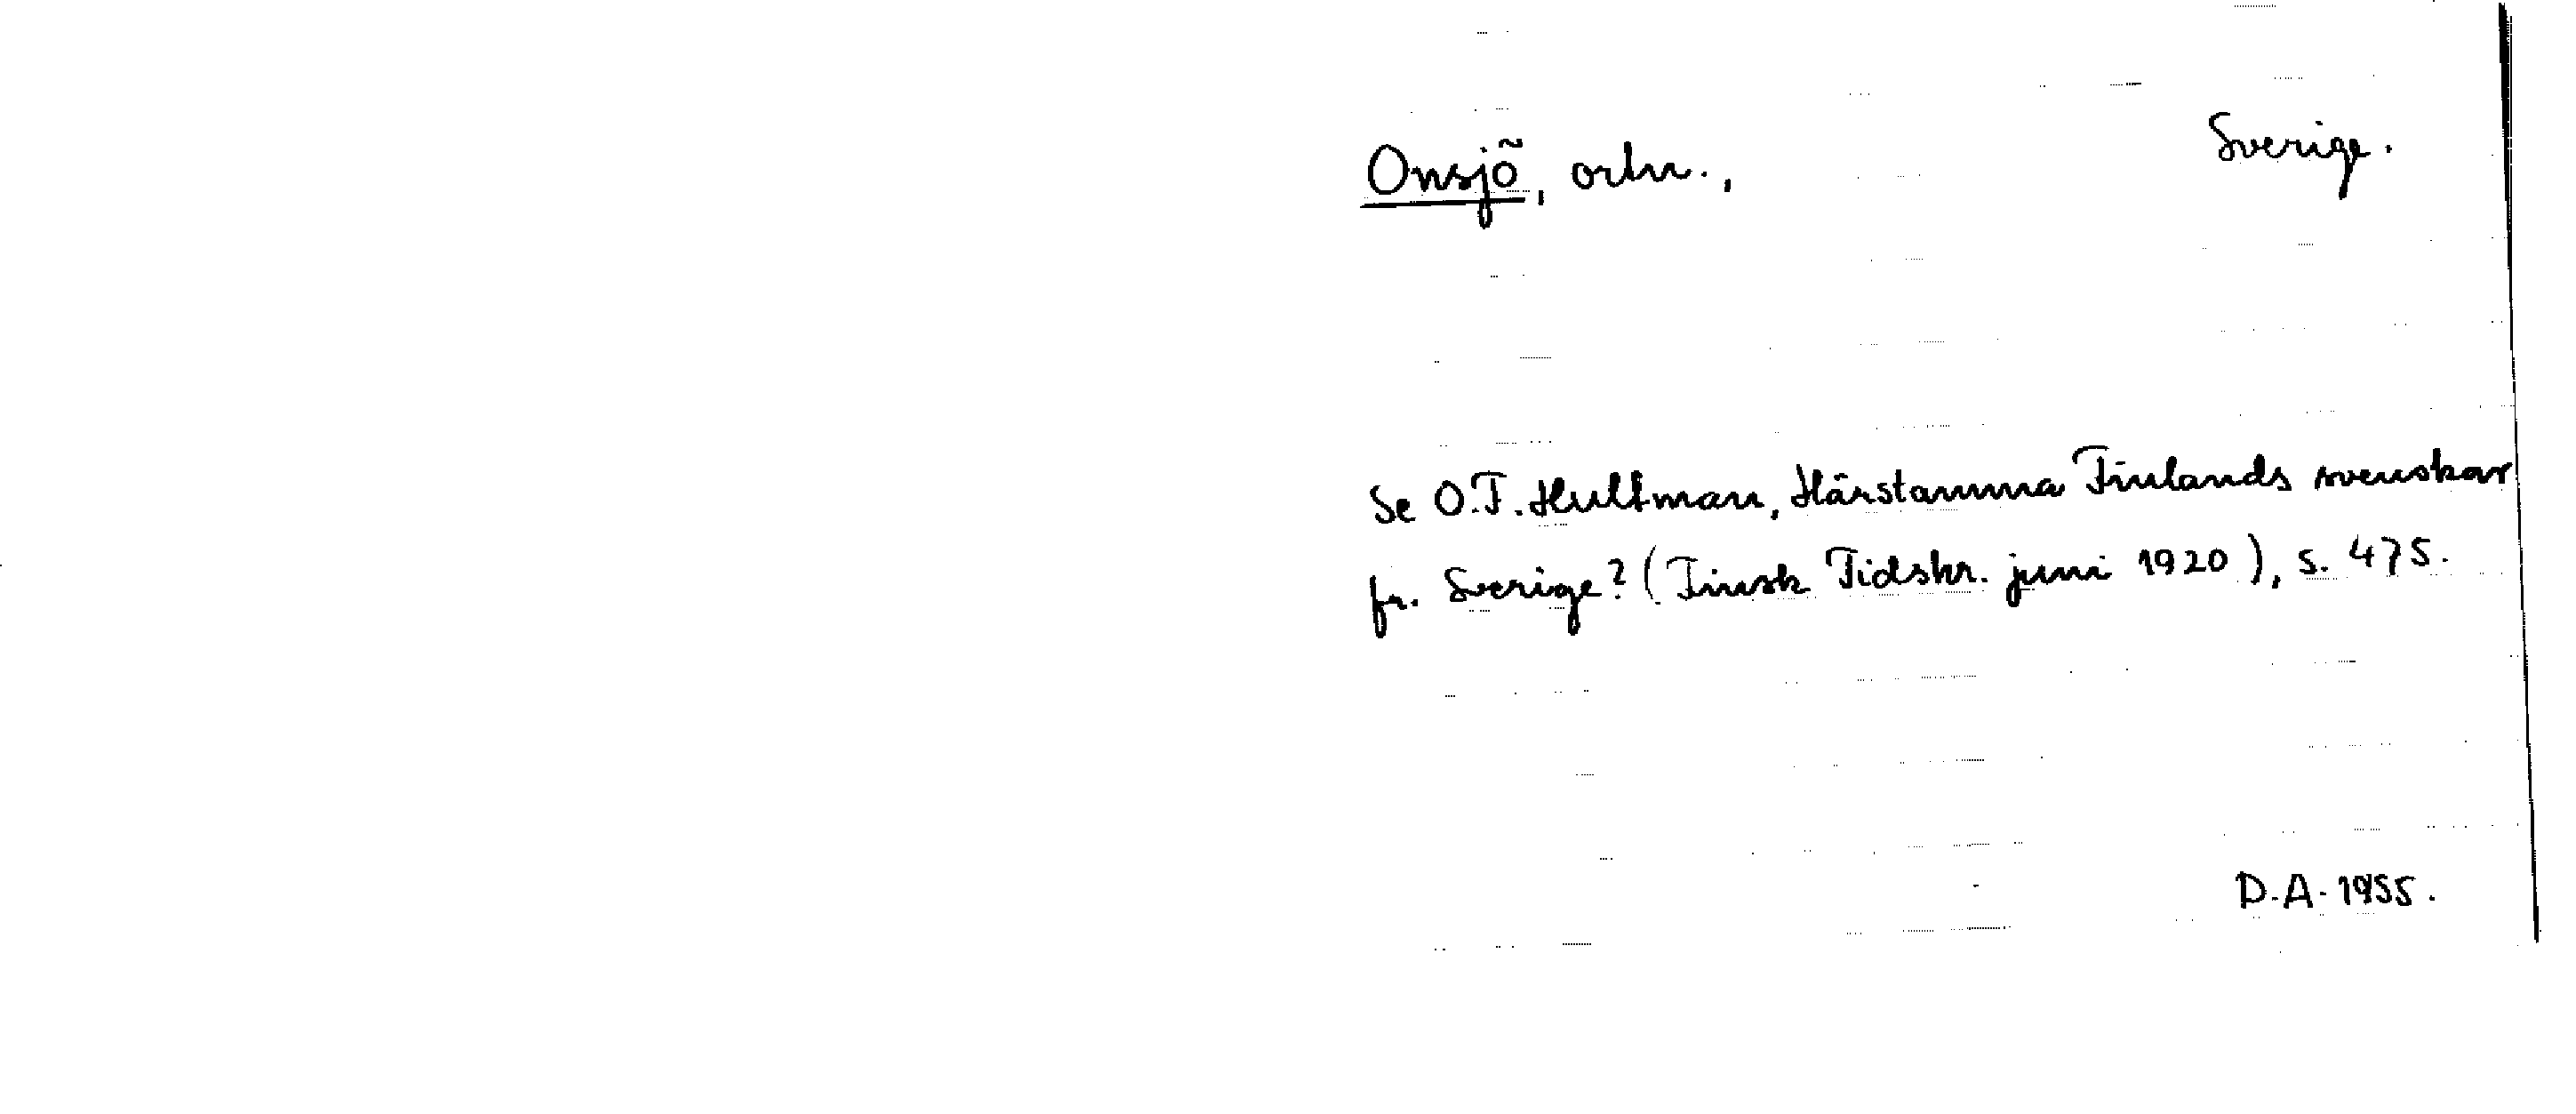 Onsjö, ortn., Sverige.
Se O.F. Hultman, Härstamma Finlands svenskar
fr. Sverige? (Finsk Tidskr. juni 1920), s. 475.
D.A. 1955.